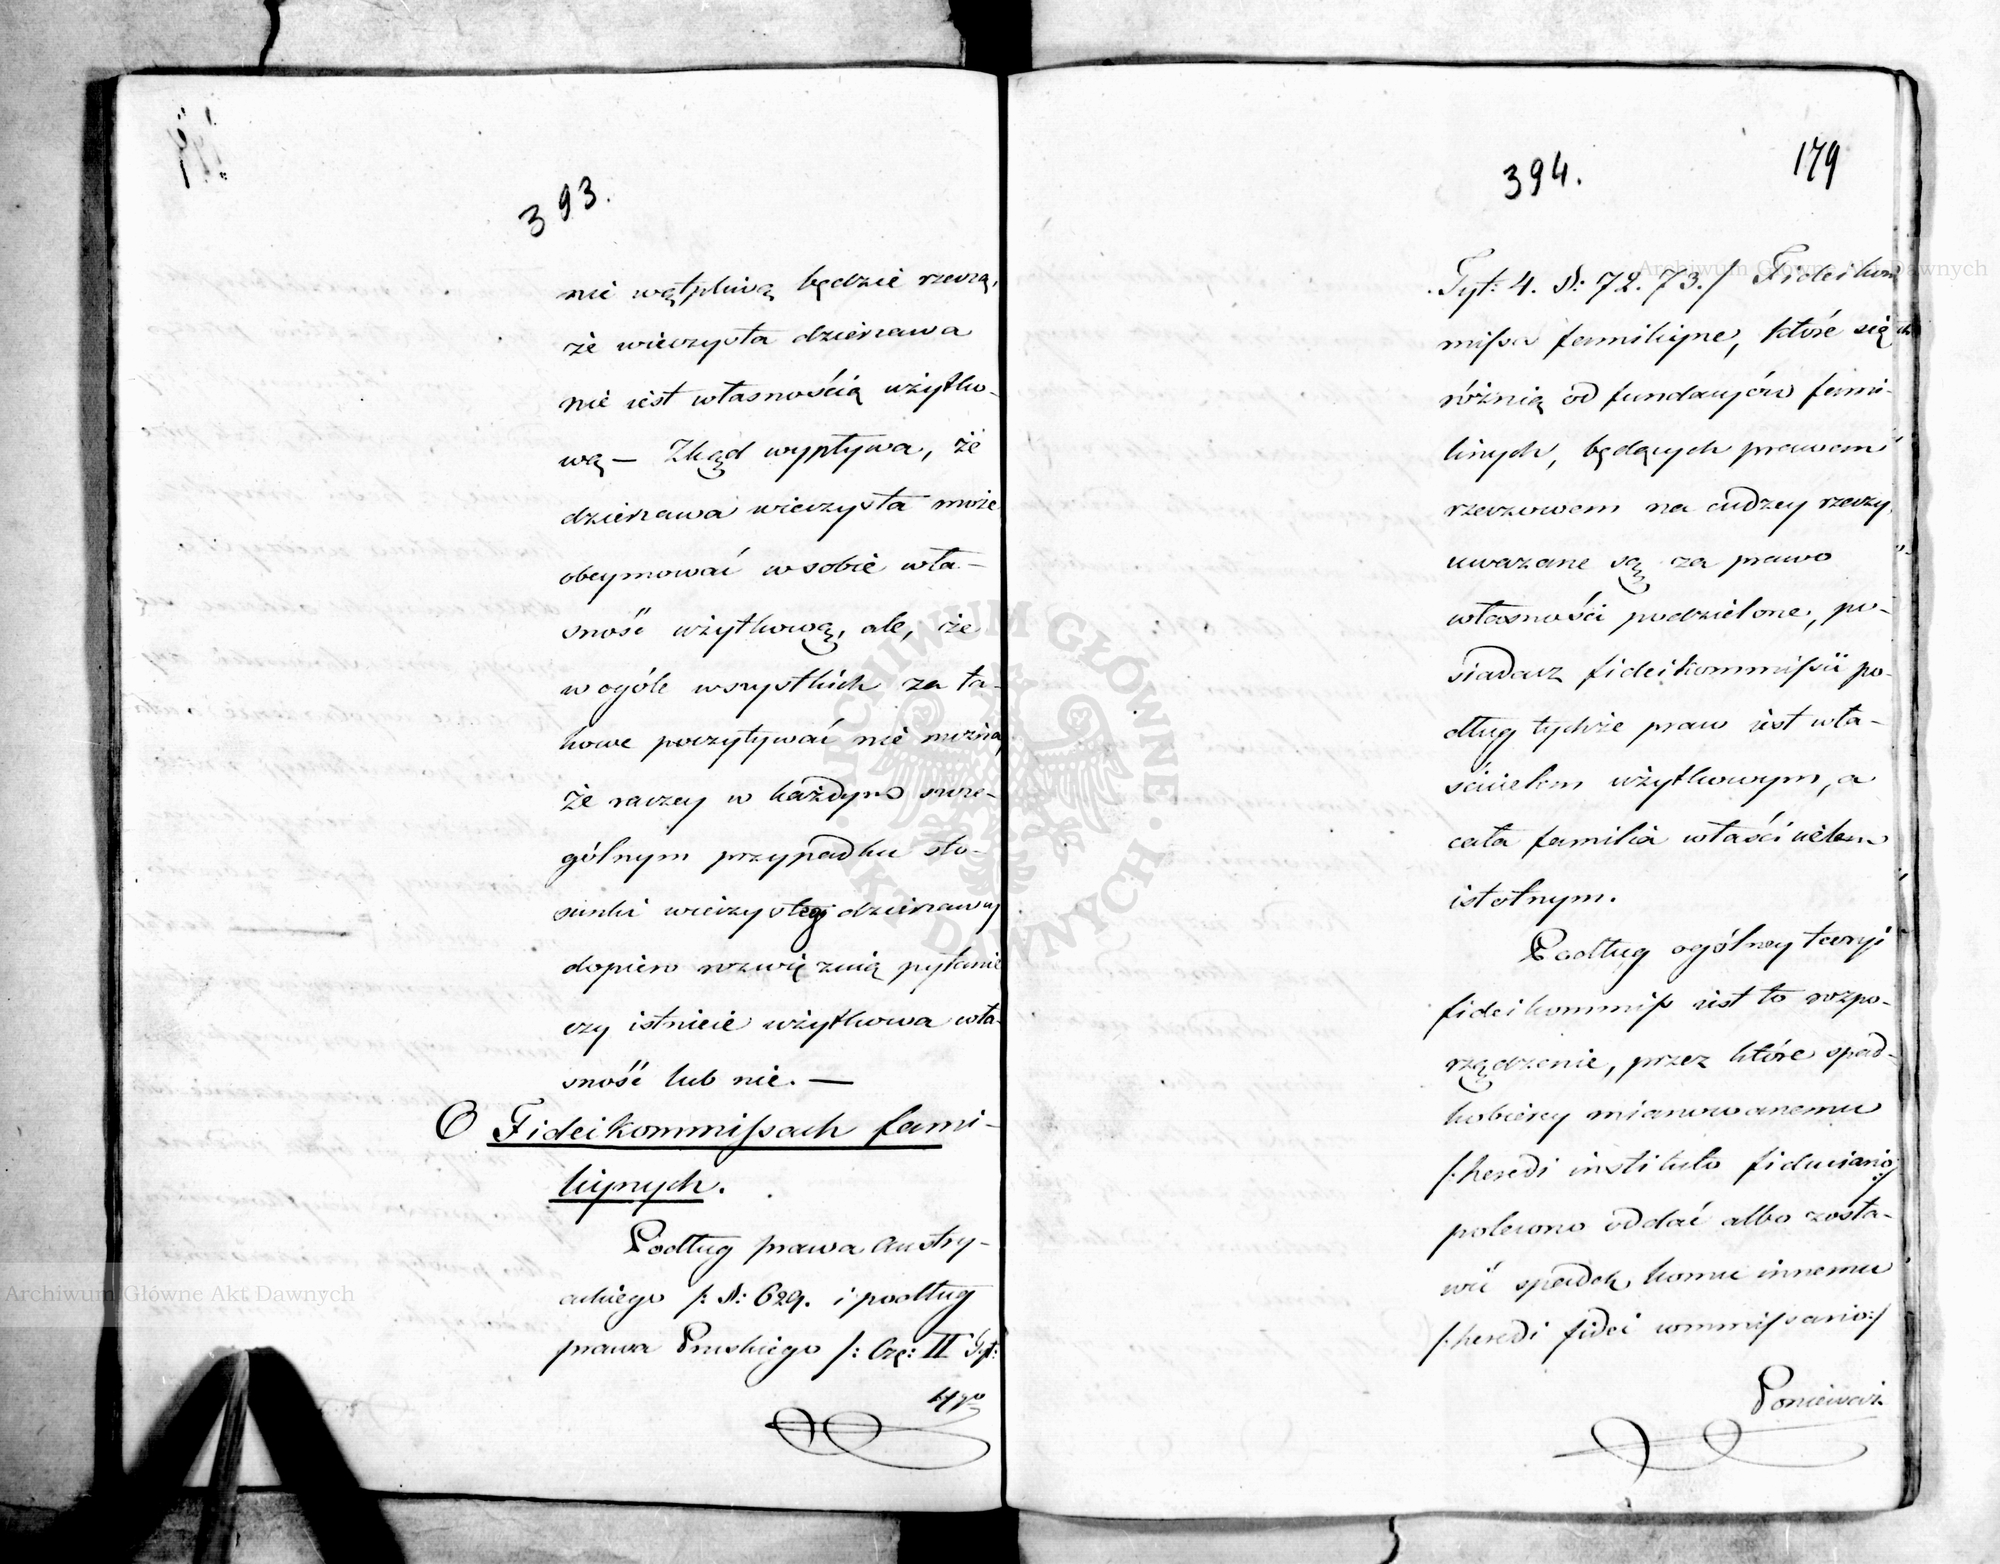 393.
nie wątpliwą będzie rzeczą,
że wieczysta dzierzawa
nie iest własnością użytko-
wą — Zkąd wypływa, że
dzierzawa wieczysta może
obeymować w sobie wła-
sność użytkową, ale, że
w ogóle wszystkich za ta-
kowe poczytywać nie można,
że raczey w każdym szcze-
gólnym przypadku sto-
sunki wieczystey dzierzawy
dopiero rozwiężuią pytanie
czy istnieie użytkowa wła-
sność lub nie. —
O Fideikommißach fami-
liynych.
Podług prawa Austry-
ackiego /: §: 629. i podług
prawa Pruskiego /: Czę: II Tyt:
4go
394.
179
Tyt: 4. §: 72. 73./ Fideikom
mißa familiyne, które się
różnią od fundacyów fami-
linych, będących prawem
rzeczowem na cudzey rzeczy,
uwazane są za prawo
własności podzielone, po-
siadacz fideikommißu po-
dług tychże praw iest wła-
ścicielem użytkowym, a
cała familia właścicielem
istotnym.
Podług ogólney teoryi
fideikommiß iest to rozpo-
rządzenie, przez które spad-
kobiercy mianowanemu
/:heredi instituto fiduciario:/
polecono oddać albo zosta-
wić spadek komu innemu
/:heredi fidei commißario:/
Ponieważ
Archiwum Główne Akt Dawnych
Archiwum Główne Akt Dawnych
ARCHIWUM GŁÓWNE · AKT DAWNYCH ·